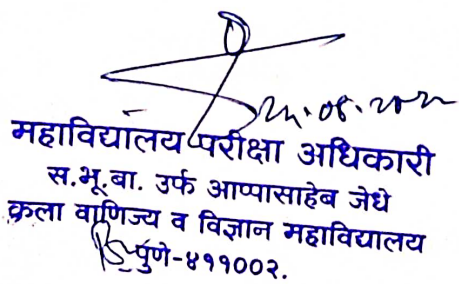 महाविद्यालय परीक्षा अधिकारी
स.भू.बा. उर्फ आप्पासाहेब जेधे
कला वाणिज्य व विज्ञान महाविद्यालय
पुणे-४११००२.